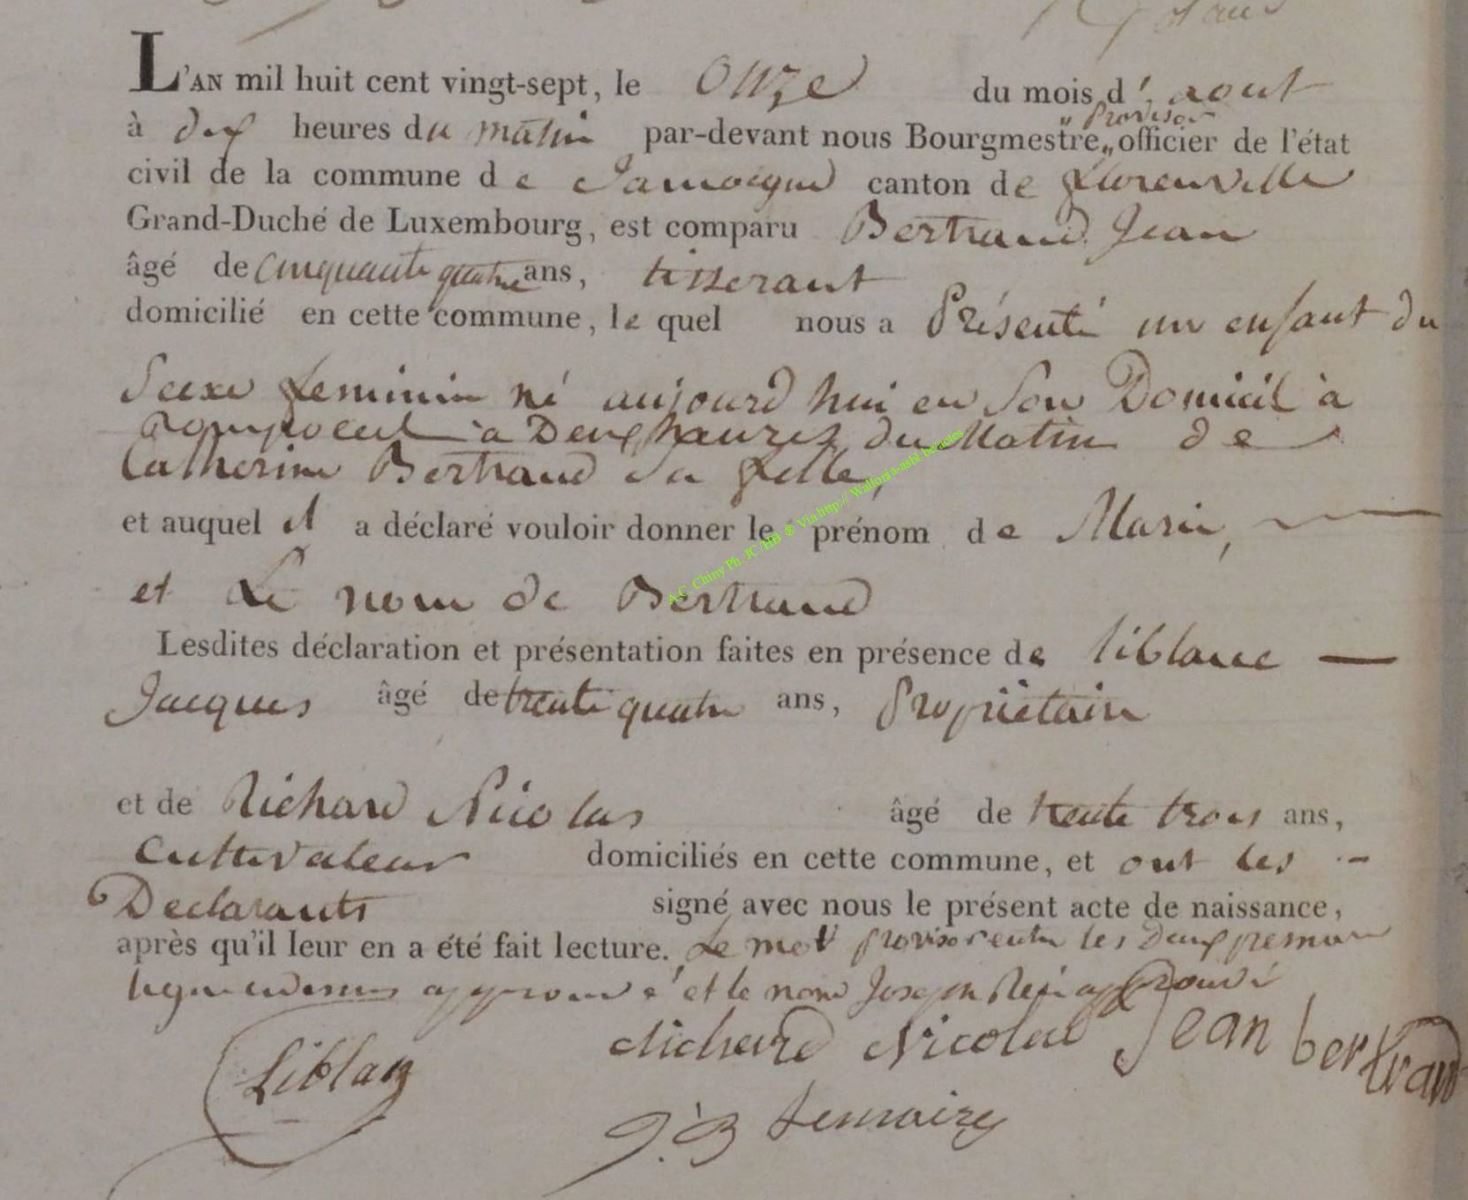 L'AN mil huit cent vingt-sept, le onze du mois d'aout
provisor
à dix heures du matin par-devant nous Bourgmestre „ officier de l'état
civil de la commune de Jamoigne canton de florenville
Grand-Duché de Luxembourg, est comparu Bertrand Jean
âgé de cinquante quatre ans, tisserant
domicilié en cette commune, le quel nous a présenté un enfant du
Sexe feminin né aujourd hui en Son Domicil à
a Deux heures du Matin de
Catherine Bertrand Sa fille,
et auquel il a déclaré vouloir donner le prénom de Marie,
et Le nom de Bertrand
Lesdites déclaration et présentation faites en présence de liblanc —
Jacques âgé de trente quatre ans, propriètaire
et de Richard Nicolas âgé de trente trois ans,
Cultivateur domiciliés en cette commune, et ont les -
Declarants signé avec nous le présent acte de naissance,
après qu'il leur en a été fait lecture. Le mot provisor entre les Deux premier
approuvé et le nom Joseph approuvé
Liblan Richard Nicolas Jean bertrand
J.B Lemaire
A.C. Chiny Ph. JC -HB @ Via http:// Wallonia-asbl.be/actes